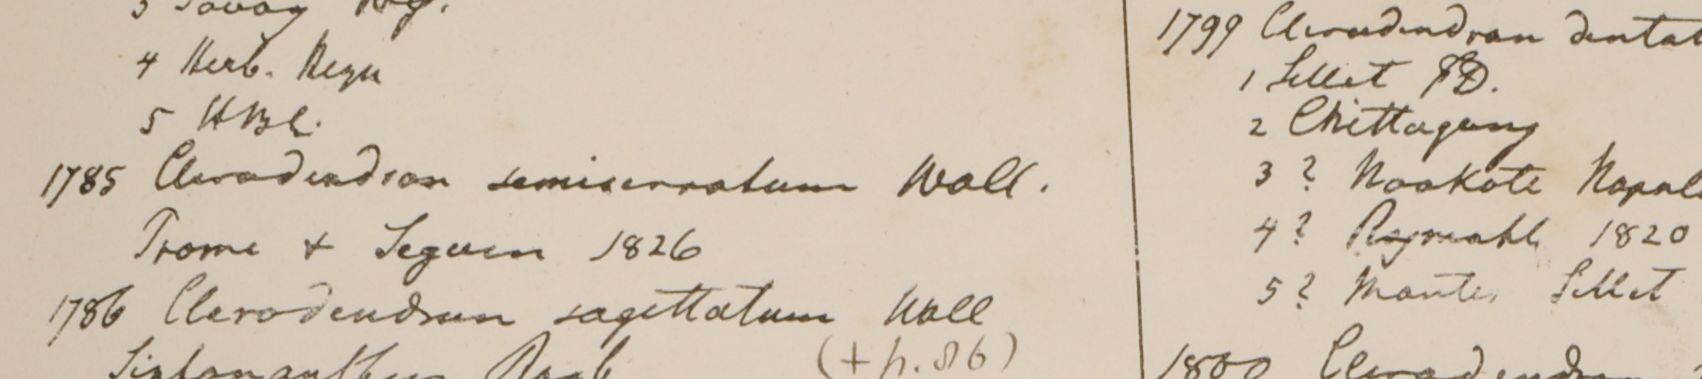 3 Tavoy
4 Herb. Heyn
5 HBC.
1785 Clerodendron semiserratum Wall.
Prome & Seguen 1826
1786 Clerodendrum sagittatum Wall
Siphonanthus Roxb
(+ p. 86)
1799 Clerodendron dentat
1 Sillet FD.
2 Chittagong
3 ? Noakote Napal
4 ? Rajmahl 1820
5 ? Montes Sillet
1800 Clerodendron